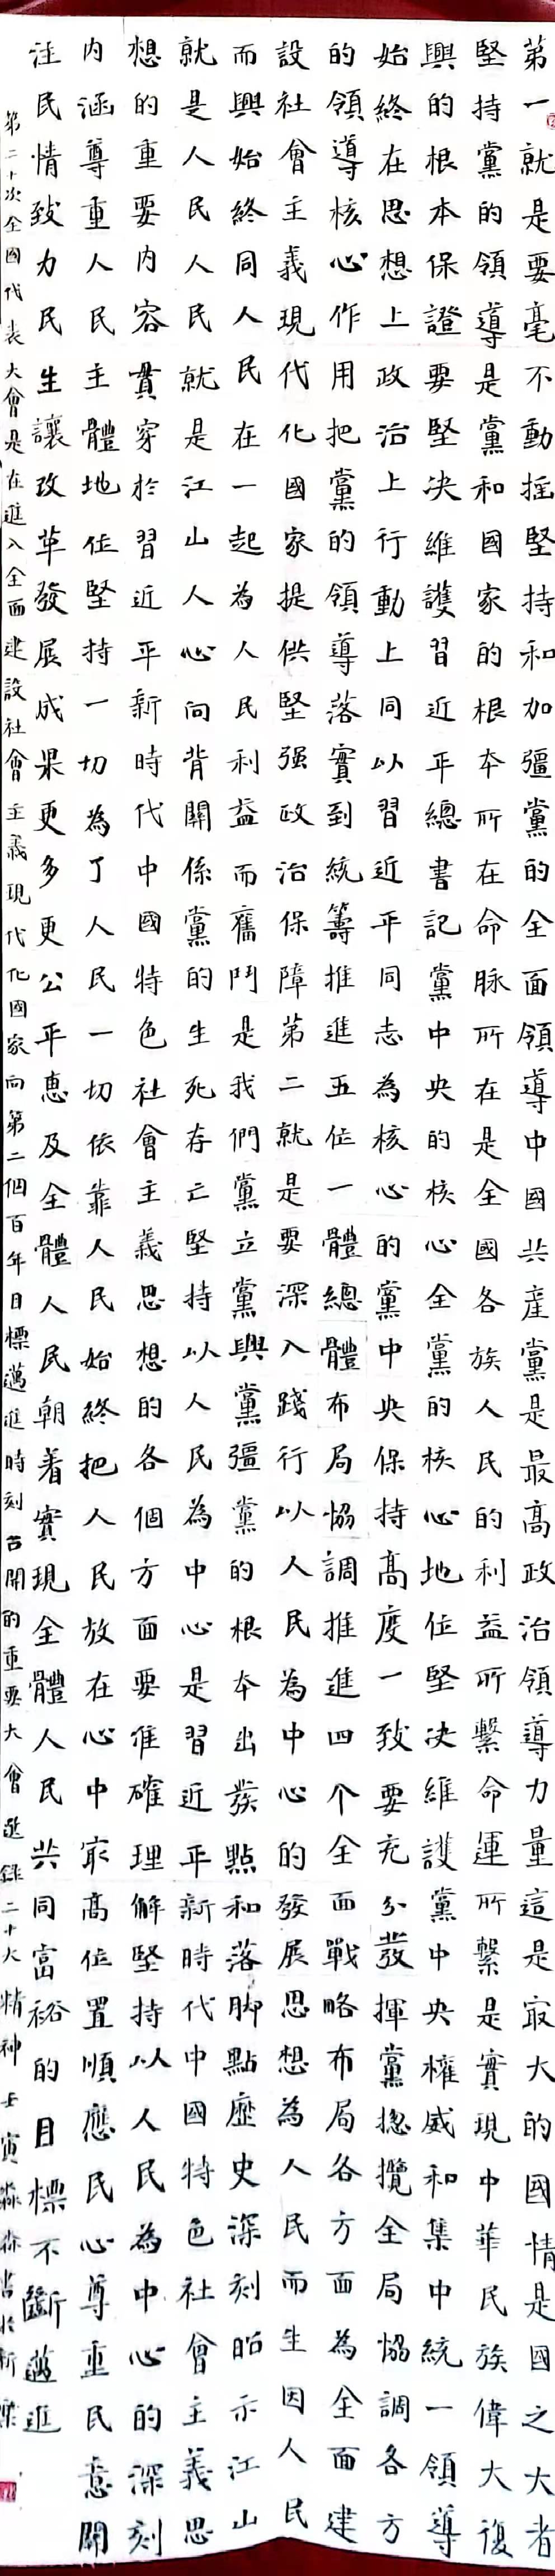 第一就是要毫不動摇堅持和加彊黨的全面領導中國共産黨是最高政治領導力量這是最大的國情是國之大者
堅持黨的領導是黨和國家的根本所在命脉所在是全國各族人民的利益所繫命運所繫是實現中華民族偉大復
興的根本保證要堅决維護習近平總書記黨中央的核心全黨的核心地位堅决維護黨中央權威和集中統一領導
始終在思想上政治上行動上同以習近平同志為核心的黨中央保持高度一致要充分發揮黨揔攬全局協調各方
的領導核心作用把黨的領導落實到統籌推進五位一體總體布局協調推進四个全面戰略布局各方面為全面建
設社會主義現代化國家提供堅强政治保障第二就是要深入踐行以人民為中心的發展思想為人民而生因人民
而興始終同人民在一起為人民利益而奮鬥是我們黨立黨興黨彊黨的根本出發點和落脚點歷史深刻昭示江山
就是人民人民就是江山人心向背關係黨的生死存亡堅持以人民為中心是習近平新時代中國特色社會主義思
想的重要内容貫穿於習近平新時代中國特色社會主義思想的各個方面要准確理解堅持以人民為中心的深刻
内涵尊重人民主體地位堅持一切為了人民一切依靠人民始終把人民放在心中最高位置順應民心尊重民意關
注民情致力民生讓改革發展成果更多更公平惠及全體人民朝着實現全體人民共同富裕的目標不斷邁進
第二十次全國代表大會是在進入全面建設社會主義現代化國家向第二個百年目標邁進時刻召開的重要大會 選錄二十大精神 壬寅